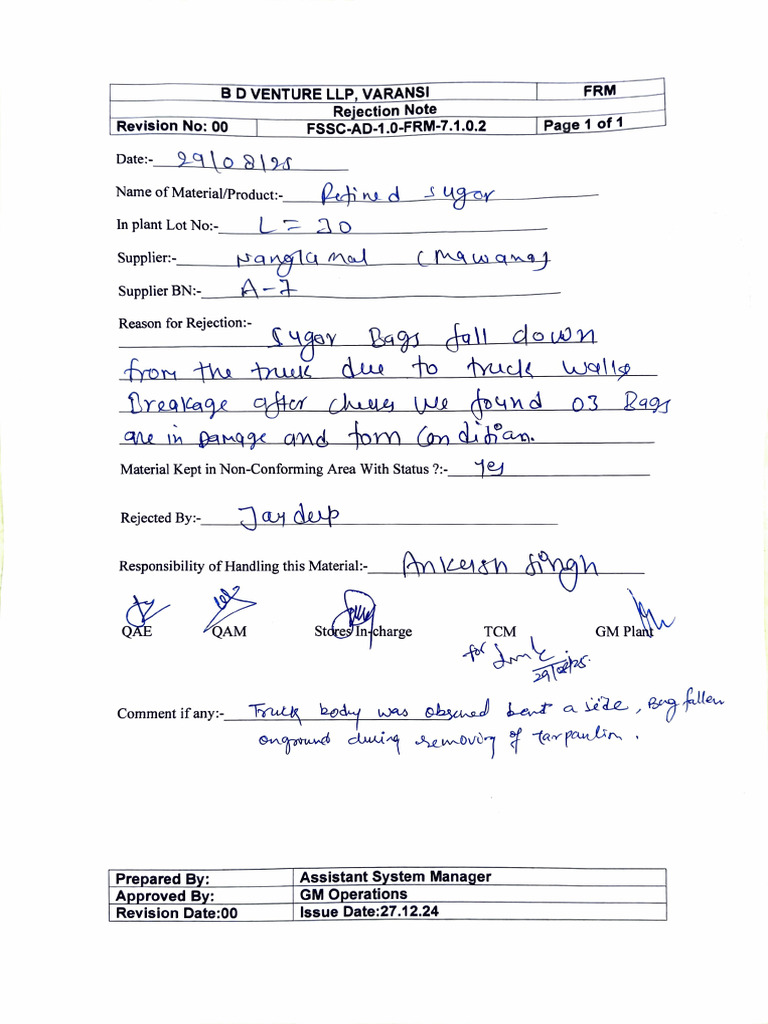 B D VENTURE LLP, VARANSI FRM
Rejection Note
Revision No: 00 FSSC-AD-1.0-FRM-7.1.0.2 Page 1 of 1
Date:- 29/08/25
Name of Material/Product:- Refined sugar
In plant Lot No:- L = 30
Supplier:- Nanglamal (Mawana)
Supplier BN:- A-7
Reason for Rejection:- Sugar Bags fall down
from the truck due to truck walls
Breakage after check we found 03 Bags
are in Damage and torn Condition.
Material Kept in Non-Conforming Area With Status ?:- yes
Rejected By:- Jaydeep
Responsibility of Handling this Material:- Ankersh Singh
QAE QAM Stores In-charge TCM GM Plant
for
29/08/25.
Comment if any:- Truck body was observed bent a side, Bag fallen
onground during removing of tarpaulin.
Prepared By: Assistant System Manager
Approved By: GM Operations
Revision Date:00 Issue Date:27.12.24